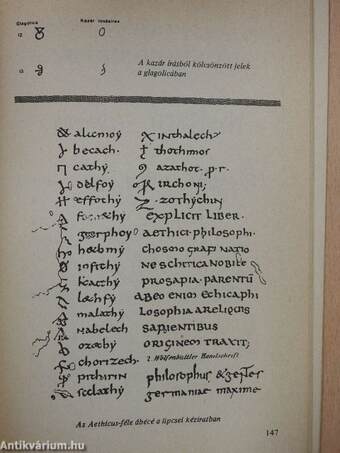 Glagolica Kazár
12
13
A kazár írásból kölcsönzött jelek
a glagolicában
alicmoÿ xinthalech
becach. thothmos
cathÿ azathot. p. r.
delfoÿ irchoni;
effothÿ Z. zothÿchin
EXPLICIT LIBER.
AETHICI. PHILOSOPHI.
CHOSMOGRAFI NATIO
NESCHITICA NOBILE
PROSAPIA. PARENTŪ
lechfÿ ABEO ENIM ETHICA PHI
malathÿ LOSOPHIA A RELIQUIS
nabelech SAPIENTIBUS
ozechÿ ORIGINEM TRAXIT;
chorizech. 2. Wolfenbüttler Handschrift
pithirin philosophus &
germaniae maxime
Az Aethicus-féle ábécé a lipcsei kéziratban
147
Antikvárium.hu